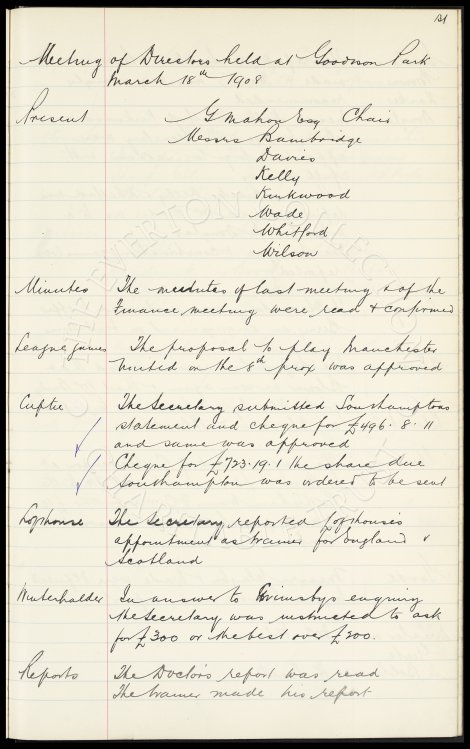 Meeting of Directors held at Goodison Park
March 18th 1908
Present G Mahon Esq Chair
Messrs Bainbridge
Davies
Kelly
Kirkwood
Wade
Whitford
Wilson
Minutes The minutes of last meeting & of the
Finance meeting were read & confirmed
League Games The proposal to play Manchester
United on the 8th prox was approved
Cuptie The Secretary submitted Southamptons
statement and cheque for £496.8.11
and same was approved
Cheque for £723.19.1 the share due
Southampton was ordered to be sent
Lofthouse The Secretary reported Lofthouse's
appointment as trainer for England &
Scotland
Winterhalder In answer to Grimsbys enquiry
the Secretary was instructed to ask
for £300 or the best over £200.
Reports The Doctors report was read
The trainer made his report